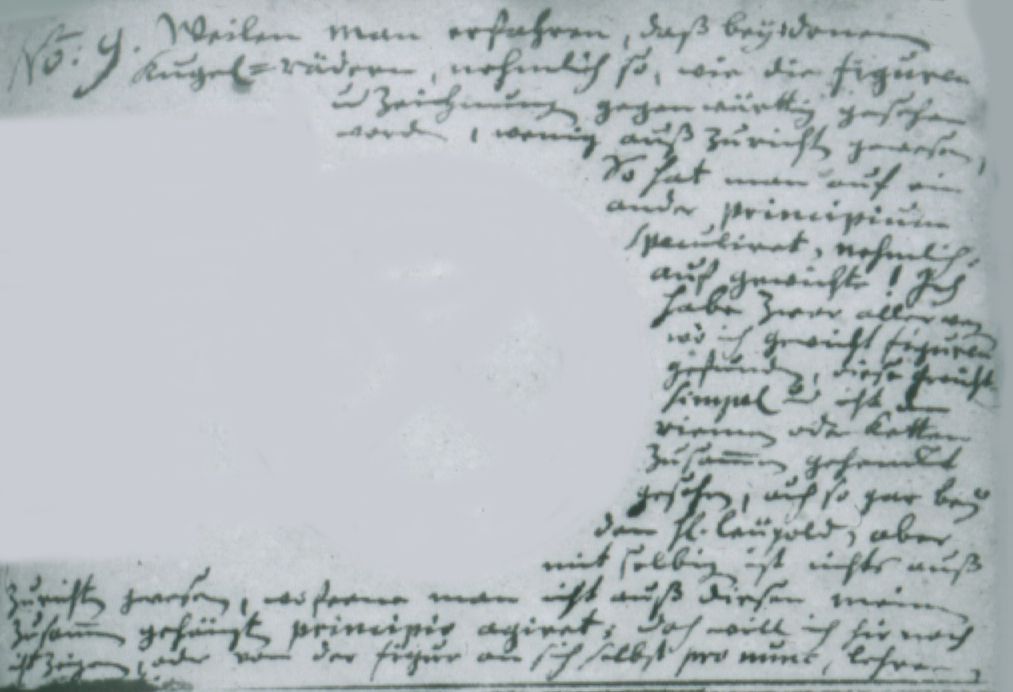 No: 9. Weilen man erfahren, daß bey denen
Kugel=rädern, nehmlich so, wie die figuren
u Zeichnung gegenwärttig gesehen
worden, wenig auß Zuricht gewesen,
So hat man auf ein
ander principium
speculiret, nehmlich:
auf gewichte! Ich
habe Zwar aller wegen
wo ich gewicht figuren
gefunden, diese
simpel u nicht an
riemen oder Ketten
Zusammen gehenckt
gesehen, auch so gar bey
dem H. Leüpold, aber
mit selbig ist nichts auß
Zurichten gewesen, woferne man nicht auß diesen meinen
Zusamm gehängt principio agiret; doch will ich hir noch
nicht Zeigen, oder von der figur an sich selbst pro nunc, lehren,